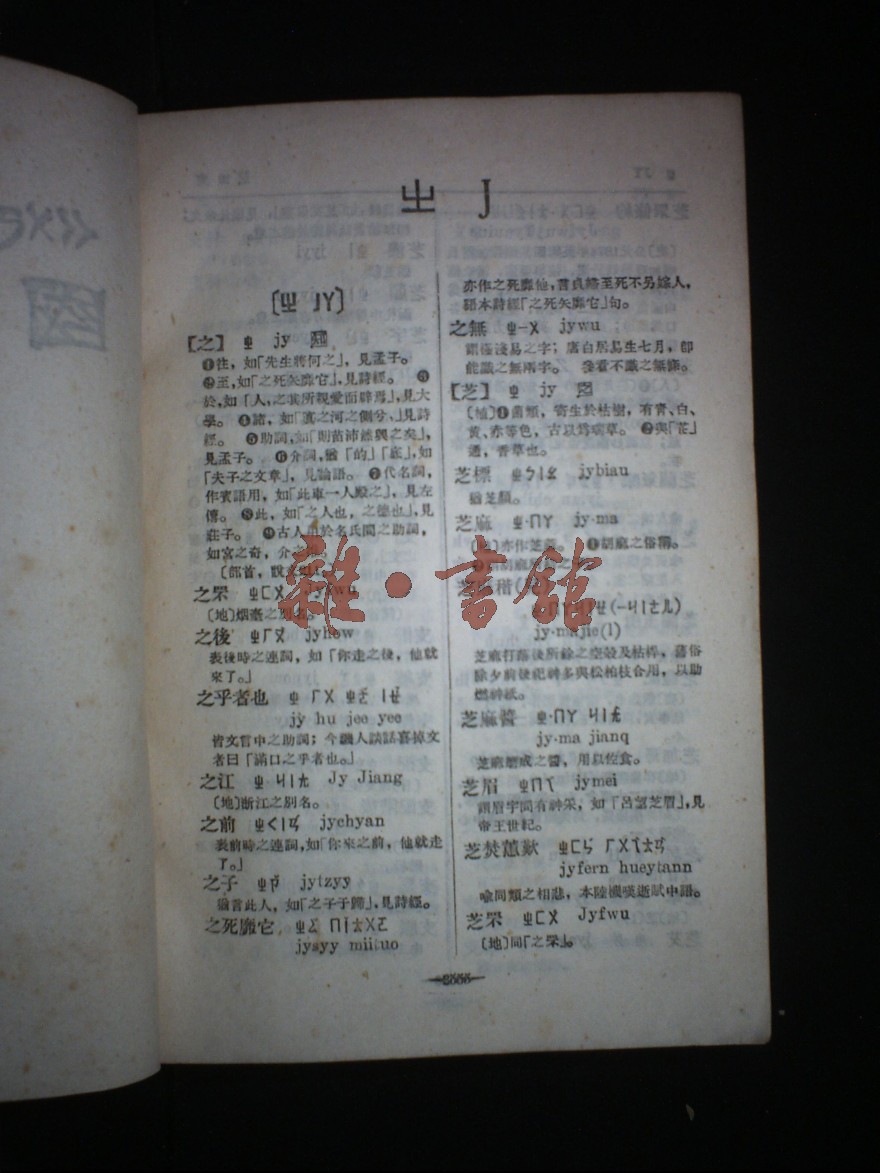 ㄓ J
〔ㄓ JY〕
【之】 ㄓ jy
❶往，如「先生將何之」，見孟子。
❷至，如「之死矢靡它」，見詩經。 ❸
於，如「人，之其所親愛而辟焉」，見大
學。 ❹諸，如「寘之河之側兮」，見詩
經。 ❺助詞，如「則苗浡然興之矣」，
見孟子。 ❻介詞，猶「的」「底」，如
「夫子之文章」，見論語。 ❼代名詞，
作賓語用，如「此車一人殿之」，見左
傳。 ❽此，如「之人也，之德也」，見
莊子。 ❾古人用於名氏間之助詞，
如宮之奇，介之
〔部首，說文
之罘 ㄓㄈㄨ Jyfwu
〔地〕烟臺之別名。
之後 ㄓㄏㄡ jyhow
表後時之連詞，如「你走之後，他就
來了。」
之乎者也 ㄓ ㄏㄨ ㄓㄜ ㄧㄝ
jy hu jee yee
皆文言中之助詞；今譏人談話喜掉文
者曰「滿口之乎者也。」
之江 ㄓ·ㄐㄧㄤ Jy Jiang
〔地〕浙江之別名。
之前 ㄓㄑㄧㄢ jychyan
表前時之連詞，如「你來之前，他就走
了。」
之子 ㄓㄗ jytzyy
猶言此人，如「之子于歸」，見詩經。
之死靡它 ㄓㄙ ㄇㄧㄊㄨㄛ
jysyy miituo
亦作之死靡他，言貞婦至死不另嫁人，
語本詩經「之死矢靡它」句。
之無 ㄓ-ㄨ jywu
謂極淺易之字；唐白居易生七月，卽
能識之無兩字。 參看不識之無條。
【芝】 ㄓ jy
〔植〕❶菌類，寄生於枯樹，有靑、白、
黃、赤等色，古以爲瑞草。 ❷與「茝」
通，香草也。
芝標 ㄓㄅㄧㄠ jybiau
猶芝顏。
芝麻 ㄓ·ㄇㄚ jy·ma
〔植〕亦作芝蔴。 ❶胡麻之俗稱。
芝麻稭(兒)
jy·majie(l)
芝麻打落後所餘之空殼及枯稈，舊俗
除夕前後祀神多與松柏枝合用，以助
燃神紙。
芝麻醬 ㄓ·ㄇㄚ ㄐㄧㄤ
jy·ma jianq
芝麻磨成之醬，用以佐食。
芝眉 ㄓㄇㄟ jymei
謂眉宇間有神采，如「呂望芝眉」，見
帝王世紀。
芝焚蕙歎 ㄓㄈㄣ ㄏㄨㄟㄊㄢ
jyfern hueytann
喩同類之相悲，本陸機歎逝賦中語。
芝罘 ㄓㄈㄨ Jyfwu
〔地〕同「之罘」。
雜·書館